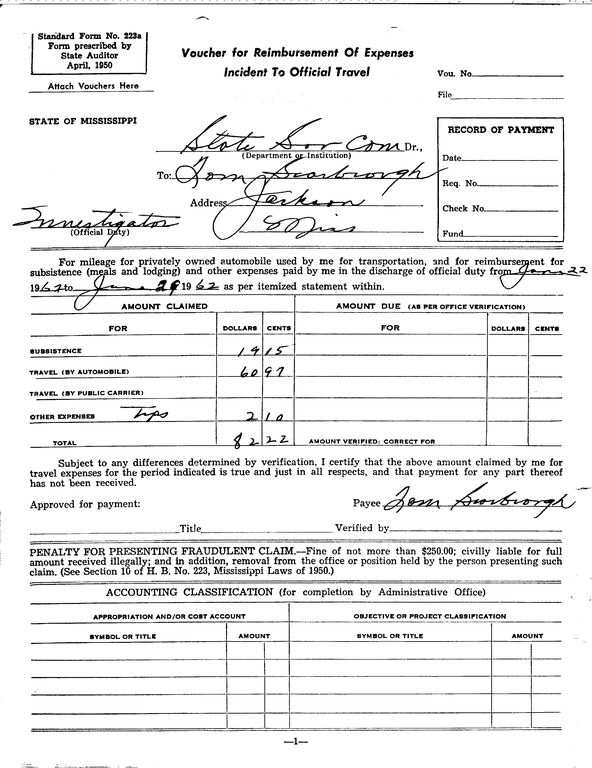 Standard Form No. 223a
Form prescribed by
State Auditor
April, 1950
Attach Vouchers Here
Voucher for Reimbursement Of Expenses
Incident To Official Travel
Vou. No.
File
STATE OF MISSISSIPPI
State Sov Com Dr.,
(Department or Institution)
To: Tom Scarbrough
Address Jackson
Miss
Investigator
(Official Duty)
RECORD OF PAYMENT
Date
Req. No.
Check No.
Fund
For mileage for privately owned automobile used by me for transportation, and for reimbursement for
subsistence (meals and lodging) and other expenses paid by me in the discharge of official duty from June 22
1962 to June 29 1962 as per itemized statement within.
AMOUNT CLAIMED AMOUNT DUE (AS PER OFFICE VERIFICATION)
FOR DOLLARS CENTS FOR DOLLARS CENTS
SUBSISTENCE 19 15
TRAVEL (BY AUTOMOBILE) 60 97
TRAVEL (BY PUBLIC CARRIER)
OTHER EXPENSES Tips 2 10
TOTAL 82 22 AMOUNT VERIFIED: CORRECT FOR
Subject to any differences determined by verification, I certify that the above amount claimed by me for
travel expenses for the period indicated is true and just in all respects, and that payment for any part thereof
has not been received.
Approved for payment: Payee Tom Scarbrough
Title Verified by
PENALTY FOR PRESENTING FRAUDULENT CLAIM.—Fine of not more than $250.00; civilly liable for full
amount received illegally; and in addition, removal from the office or position held by the person presenting such
claim. (See Section 10 of H. B. No. 223, Mississippi Laws of 1950.)
ACCOUNTING CLASSIFICATION (for completion by Administrative Office)
APPROPRIATION AND/OR COST ACCOUNT OBJECTIVE OR PROJECT CLASSIFICATION
SYMBOL OR TITLE AMOUNT SYMBOL OR TITLE AMOUNT
—1—